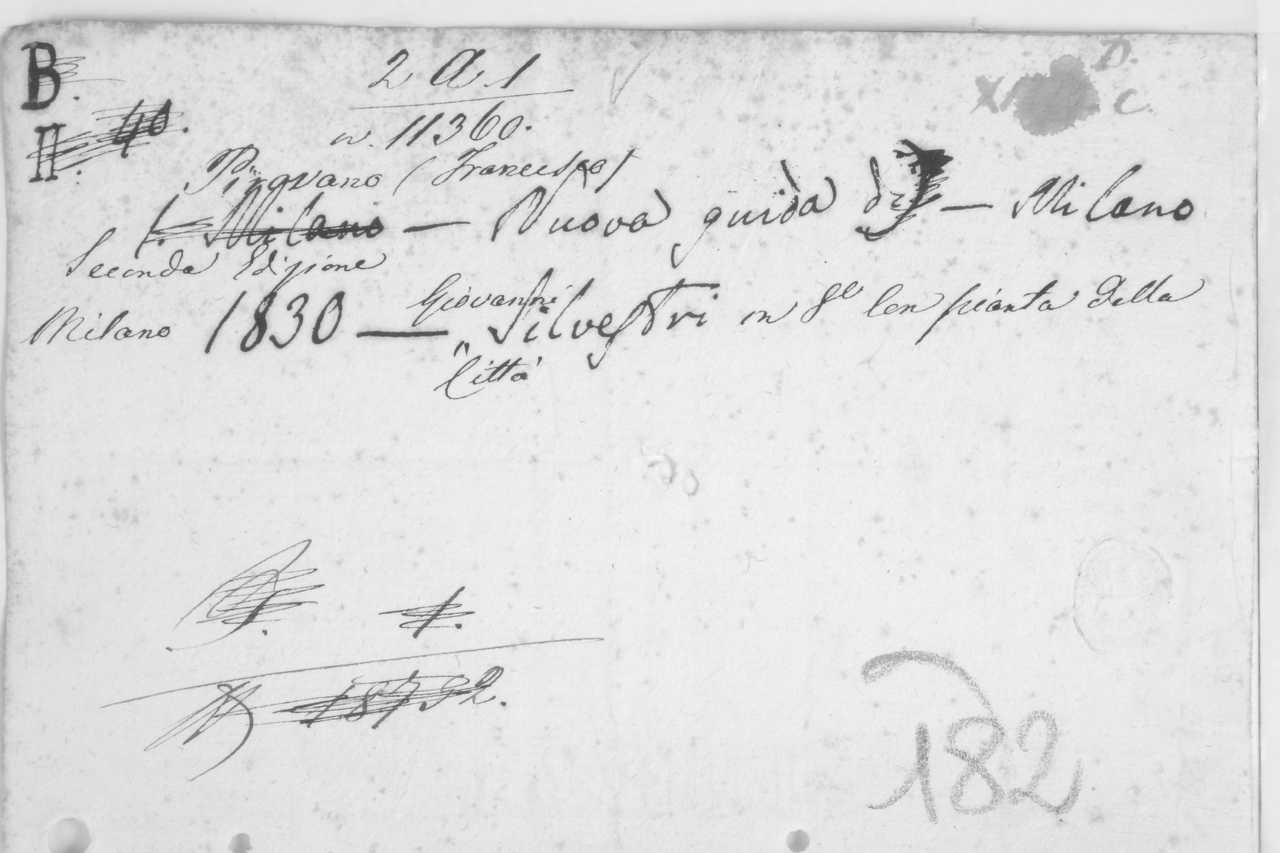 B.
2 A. 1
D.
II. 40.
n. 11360.
C.
Pirovano (Francesco)
1. Milano — Nuova guida di — Milano
Seconda Edizione
Milano 1830 — Giovanni Silvestri in 8° Con pianta della
" Città
1.
18732.
182